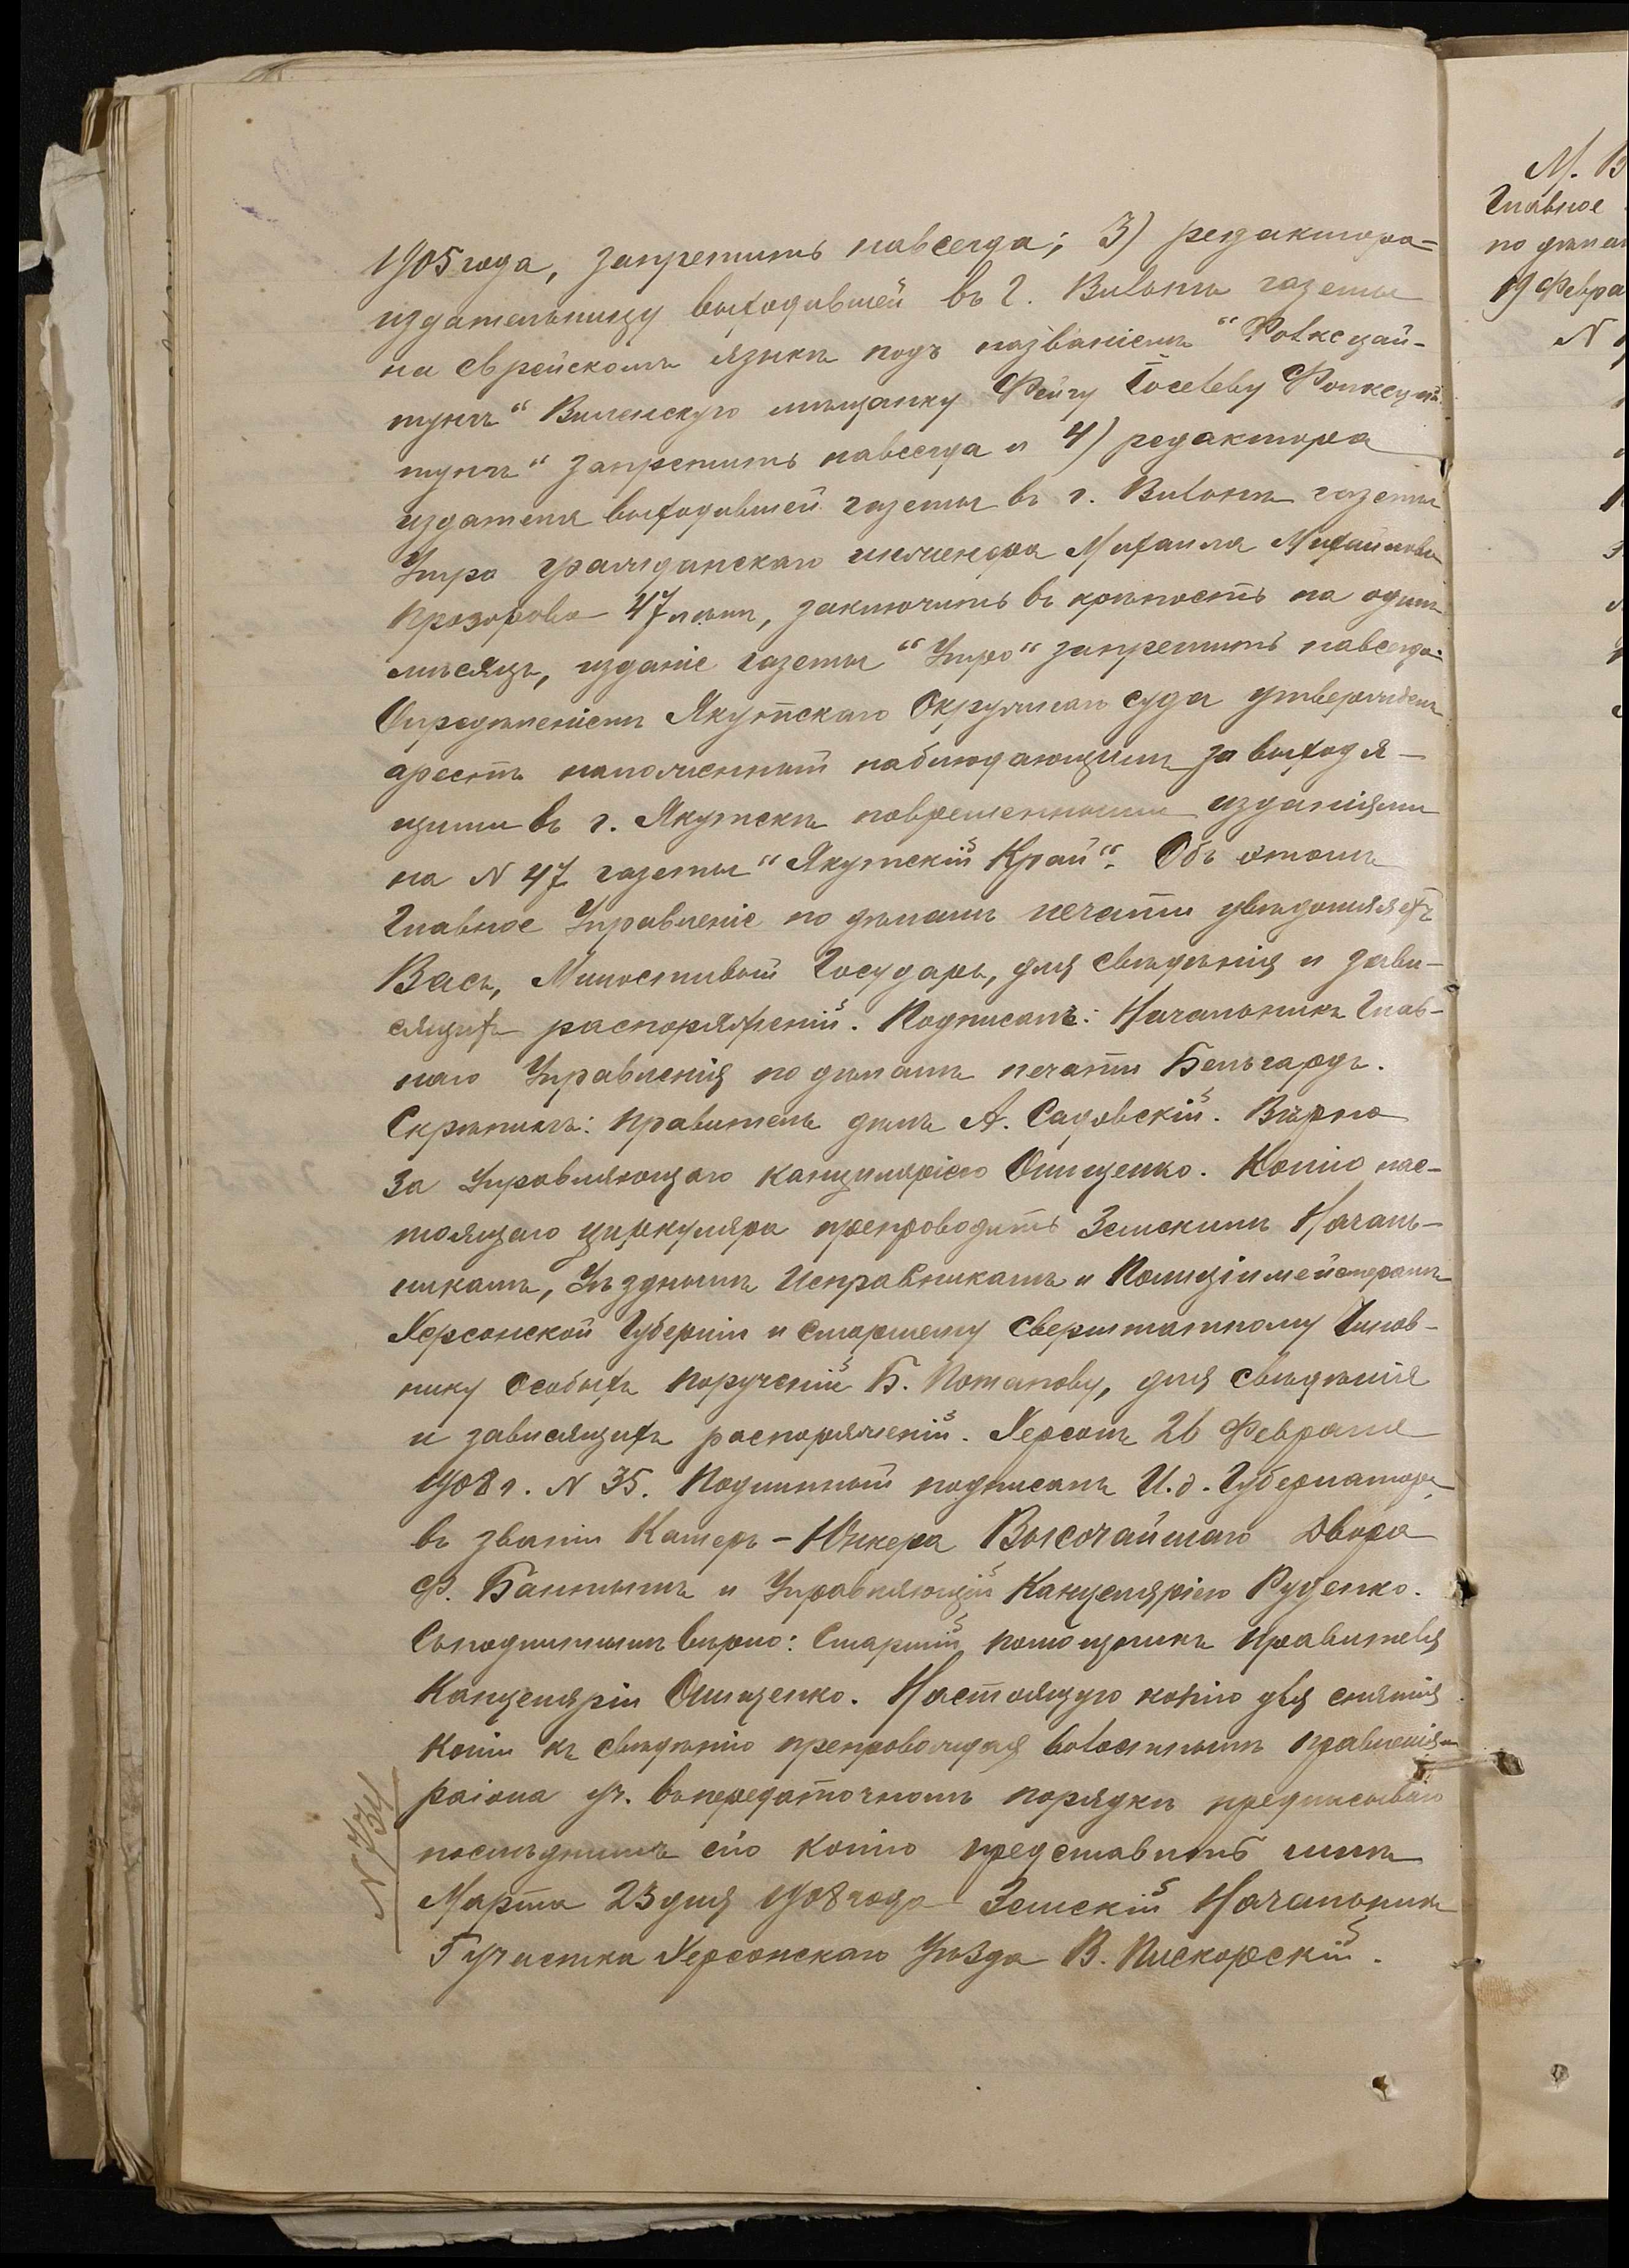 1905 года, запретить навсегда; 3) редактора=
издательницу выходившей въ г. Вильнѣ газеты
на еврейскомъ языкѣ подъ названіемъ "Фолксцай-
тунгъ" Виленскую мѣщанку Фейгу Іоселеву
тунгъ" запретить навсегда и 4) редактора
издателя выходившей газеты въ г. Вильнѣ газеты
Утро гражданскаго инженера Михаила Михайлова
Прозорова 47 лѣтъ, заключить въ крѣпость на одинъ
мѣсяцъ, изданіе газеты "Утро" запретить навсегда.
Опредѣленіемъ Якутскаго Окружнаго суда утвержденъ
арестъ наложенный наблюдающимъ за выходя-
щими въ г. Якутскѣ повременными изданіями
на N 47 газеты "Якутскій Край". Объ этомъ
Главное Управленіе по дѣламъ печати увѣдомляетъ
Васъ, Милостивый Государь, для свѣдѣнія и зави-
сящихъ распоряженій. Подписалъ: Начальникъ Глав-
наго Управленія по дѣламъ печати Бельгардъ.
Скрѣпилъ: Правитель дѣлъ А. Садовскій. Вѣрно
За Управляющаго Канцеляріею Онищенко. Копію нас-
тоящаго циркуляра препроводить Земскимъ Началь-
никамъ, Уѣзднымъ Исправникамъ и Полиціймейстерамъ
Херсонской Губерніи и Старшему Сверхштатному Чинов-
нику Особыхъ Порученій Б. Потапову, для свѣдѣнія
и зависящихъ распоряженій. Херсонъ 26 Февраля
1908 г. N 35. Подлинный подписалъ И. д. Губернатора
въ званіи Камеръ-Юнкера Высочайшаго Двора
Ф. Бантышъ и Управляющій Канцеляріею Руденко.
Съ подлиннымъ вѣрно: Старшій помощникъ Правителя
Канцеляріи Онищенко. Настоящую копію для снятія
Копіи къ свѣдѣнію препровождая волостнымъ правленіямъ
раіона уч. въ передаточномъ порядкѣ предписываю
послѣднимъ сію копію представить мнѣ
Марта 23 дня 1908 года Земскій Начальникъ
участка Херсонскаго Уѣзда В. Пискорскій.
N 734
М. В
Главное
по дѣлам
19 Февра
N